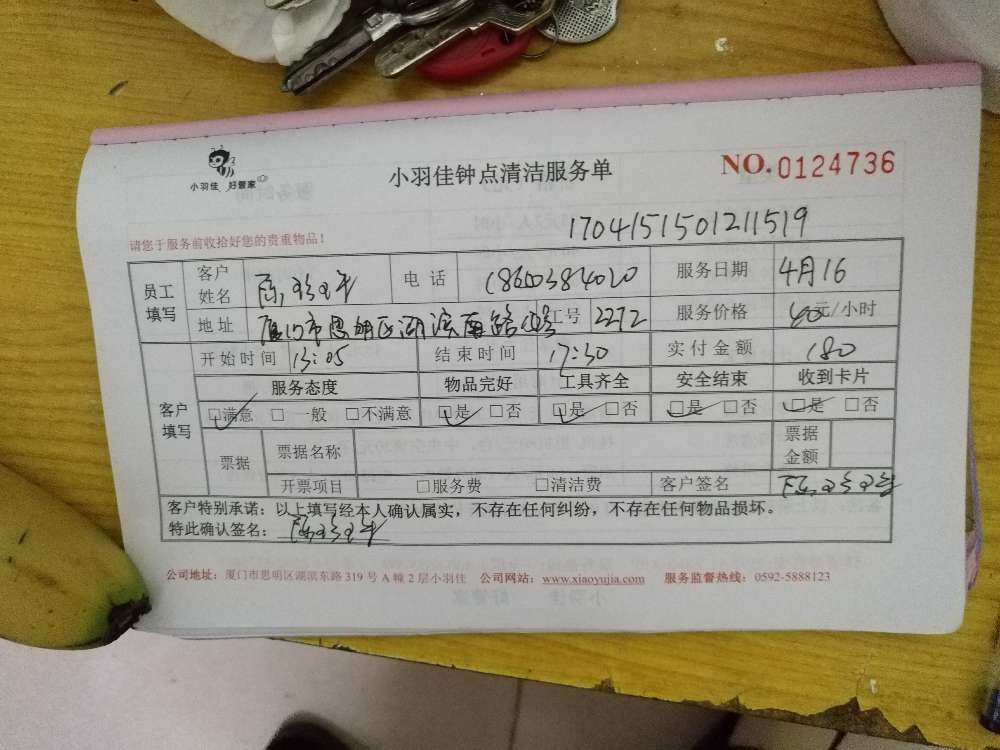 小羽佳 好管家
小羽佳钟点清洁服务单
NO.0124736
请您于服务前收拾好您的贵重物品!
1704151501211519
员工填写 客户姓名 陈 电话 服务日期 4月16
地址 厦门市思明区湖滨南路 工号 2272 服务价格 40元/小时
客户填写 开始时间 13:05 结束时间 17:30 实付金额 180
服务态度 物品完好 工具齐全 安全结束 收到卡片
☑满意 □一般 □不满意 ☑是 □否 ☑是 □否 ☑是 □否 ☑是 □否
票据 票据名称 票据金额
开票项目 □服务费 □清洁费 客户签名 陈
客户特别承诺:以上填写经本人确认属实,不存在任何纠纷,不存在任何物品损坏。
特此确认签名: 陈
公司地址:厦门市思明区湖滨东路 319 号 A 幢 2 层小羽佳 公司网站:www.xiaoyujia.com 服务监督热线:0592-5888123